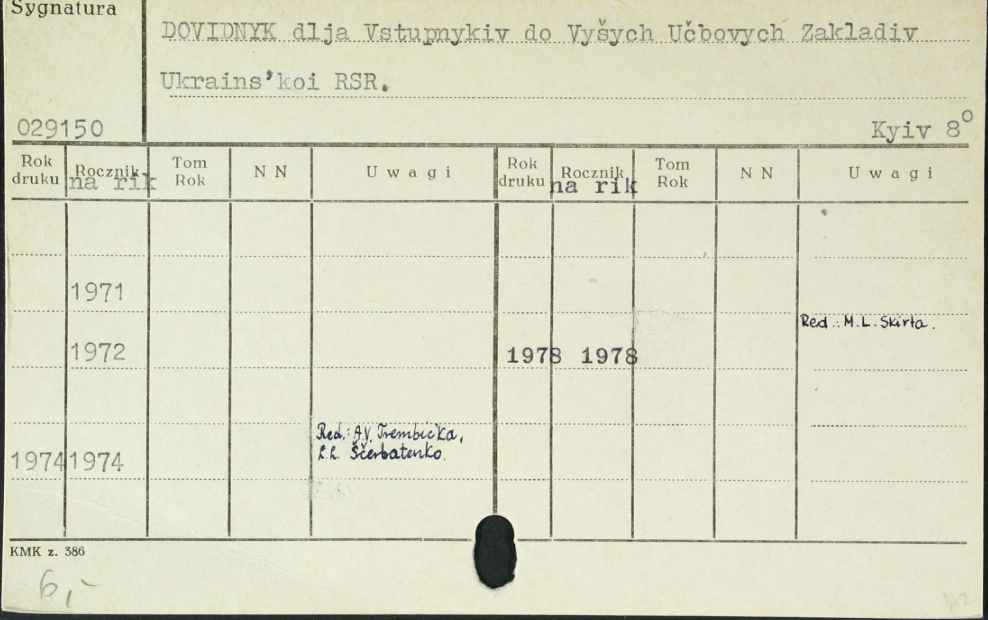 Sygnatura
DOVIDNYK dlja Vstupnykiv do Vyšych Učbovych Zakladiv
Ukrains'koi RSR.
029150
Kyiv 8°
Rok druku Rocznik na rik Tom Rok N N U w a g i Rok druku Rocznik na rik Tom Rok N N U w a g i
1971
Red.: M.L. Skirta.
1972 1978 1978
Red.: A.V. Trembic'ka,
Ščerbatenko.
1974 1974
KMK z. 386
6,-